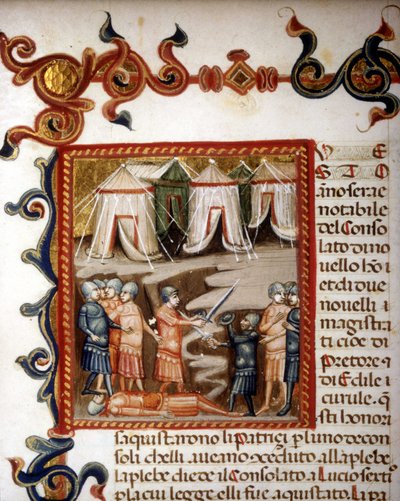 V E
S T O
ãno serae
notabile
del Conso
lato di no
uello hõi
et di due
nouelli
magistra
ti cioe di
Pretore ⁊
di Edile
curule. q̃
sti honori
saquistarono li Patrici ꝑ luno de con
soli chelli aueano ꝯceduto alla plebe
la plebe diede il Consolato a Lucio
ꝑ la cui legge elli fu e aquistata